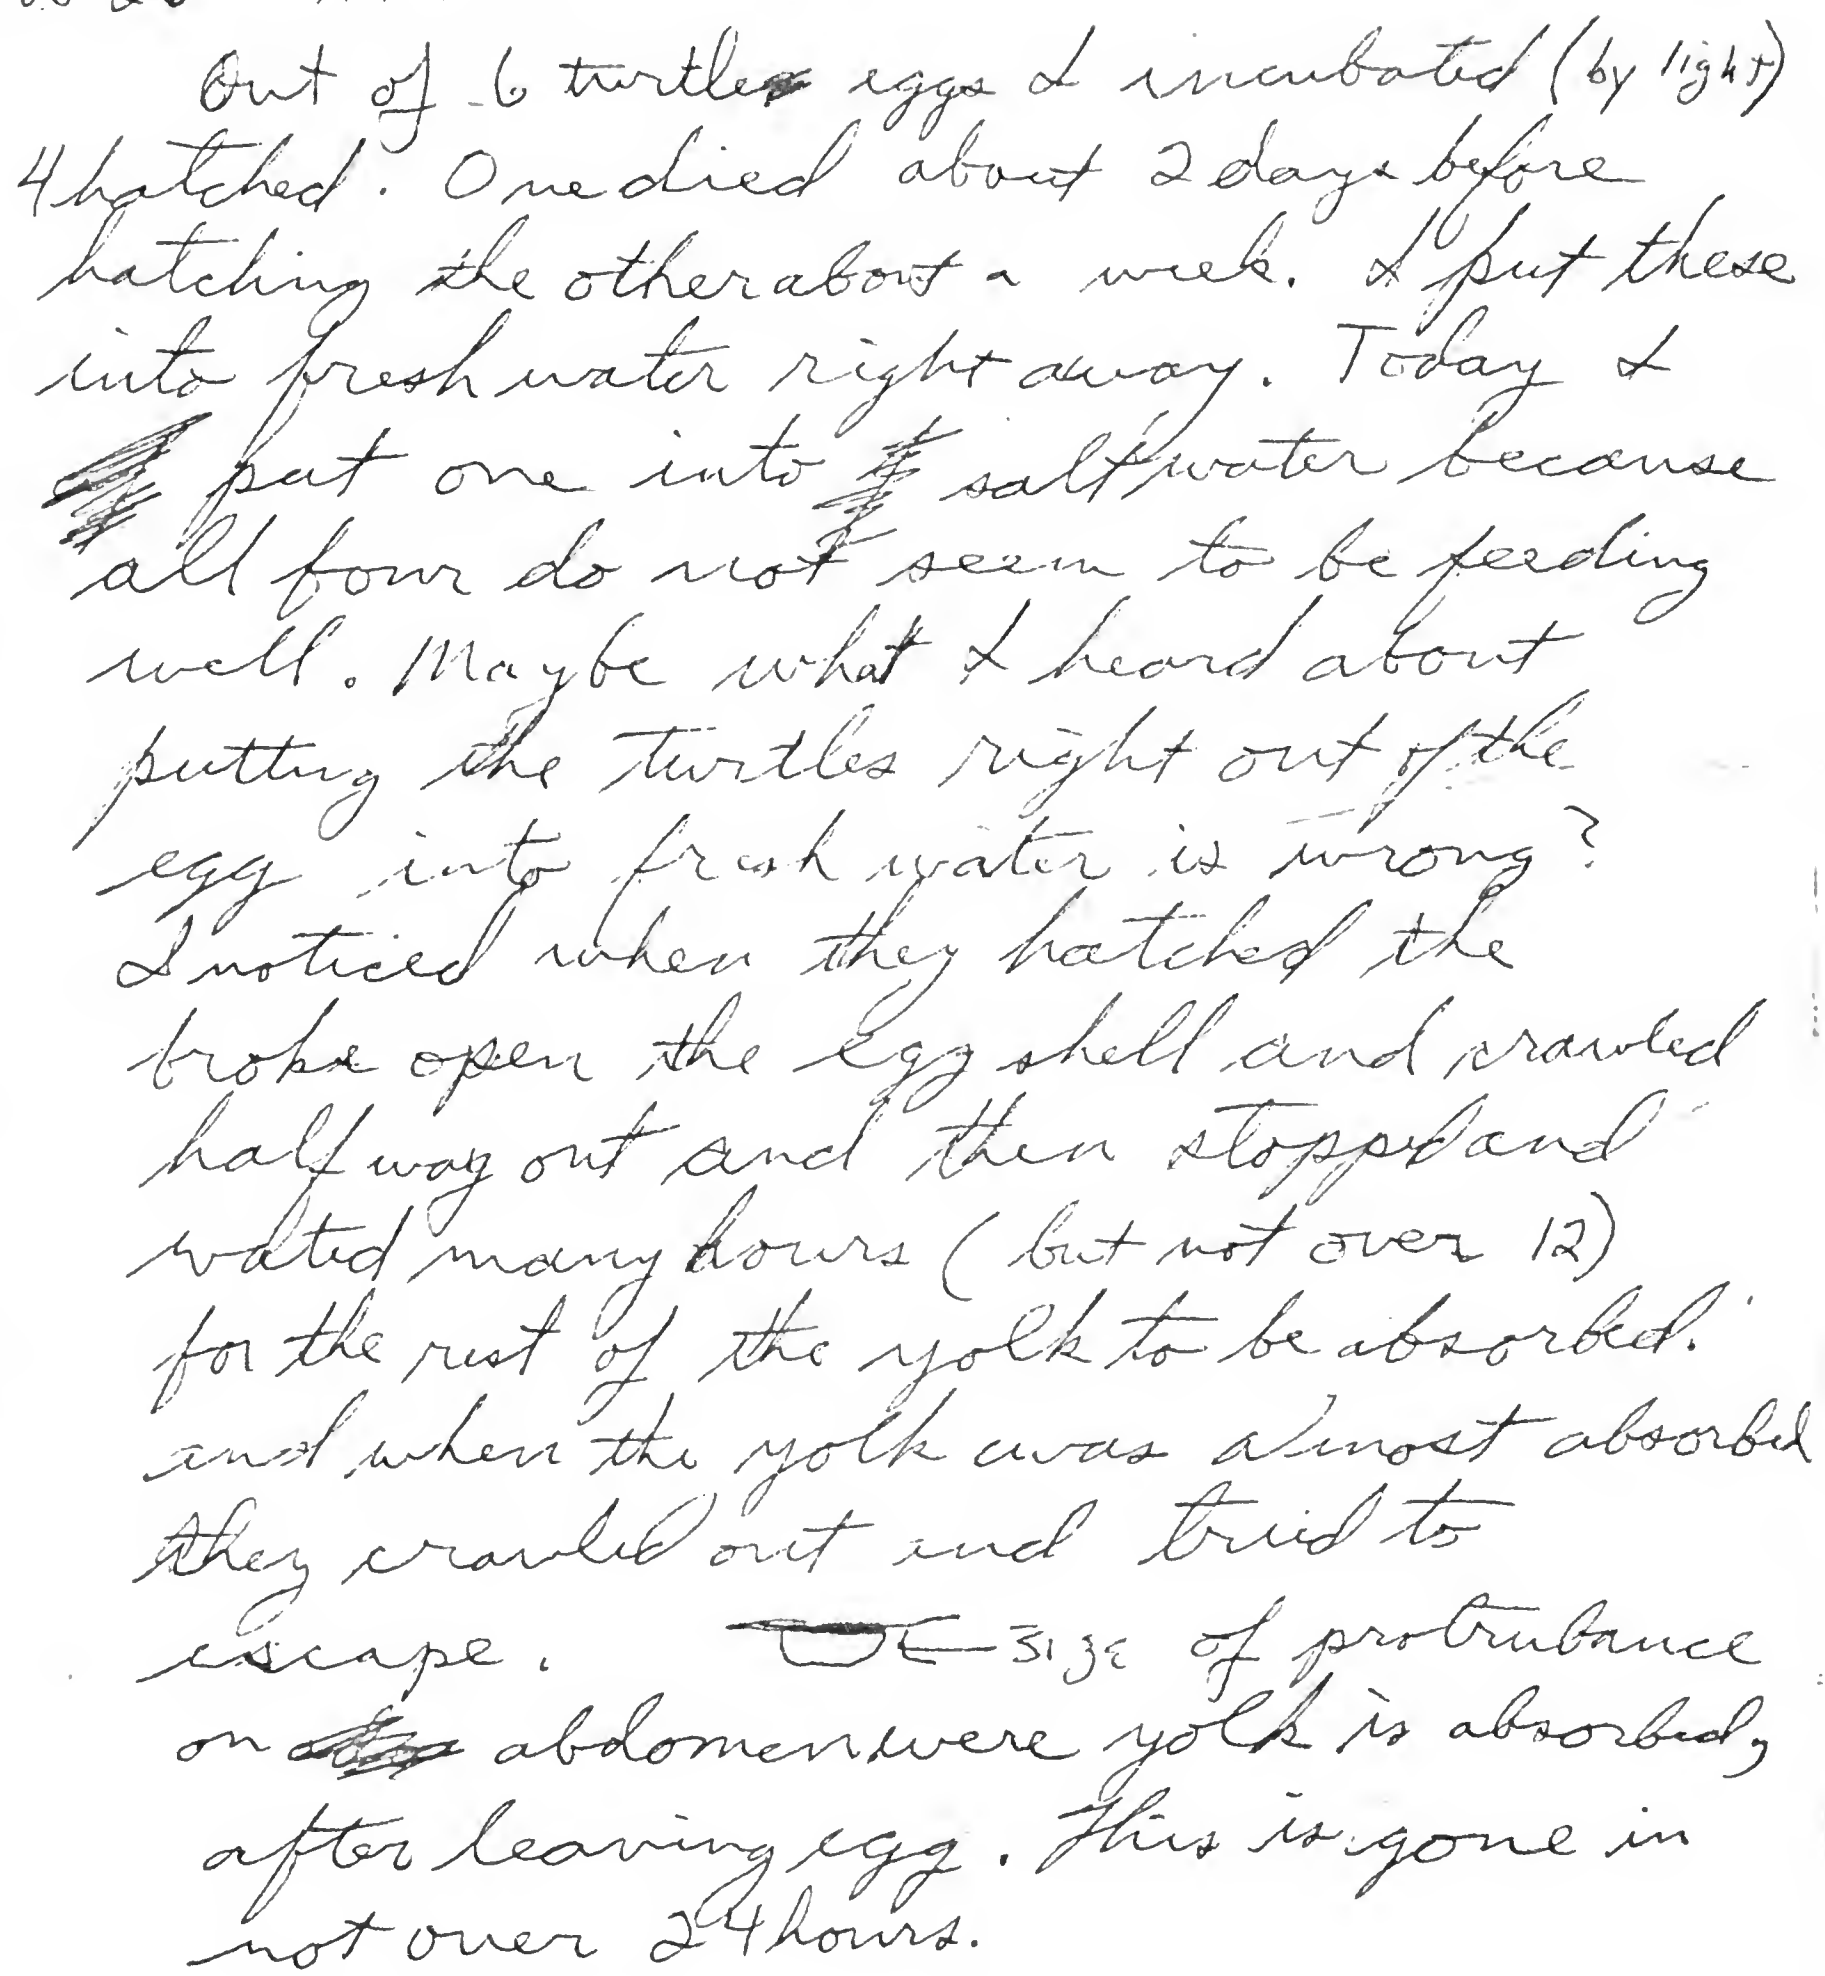 Out of 6 turtle eggs I incubated (by light)
4 hatched. One died about 2 days before
hatching the other about a week. I put these
into fresh water right away. Today I
put one into salt water because
all four do not seem to be feeding
well. Maybe what I heard about
putting the turtles right out of the
egg into fresh water is wrong?
I noticed when they hatched the
broke open the egg shell and crawled
half way out and then stopped and
waited many hours (but not over 12)
for the rest of the yolk to be absorbed.
and when the yolk was almost absorbed
they crawled out and tried to
escape. size of protrubance
on abdomen were yolk is absorbed,
after leaving egg. This is gone in
not over 24 hours.